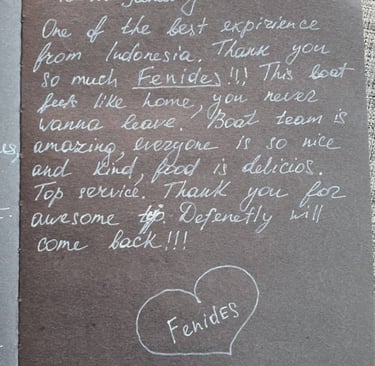 One of the best expirience
from Indonesia. Thank you
so much Fenides!!! This boat
feels like home, you never
wanna leave. Boat team is
amazing, everyone is so nice
and kind, food is delicios.
Top service. Thank you for
awesome Defenetly will
come back!!!
Fenides